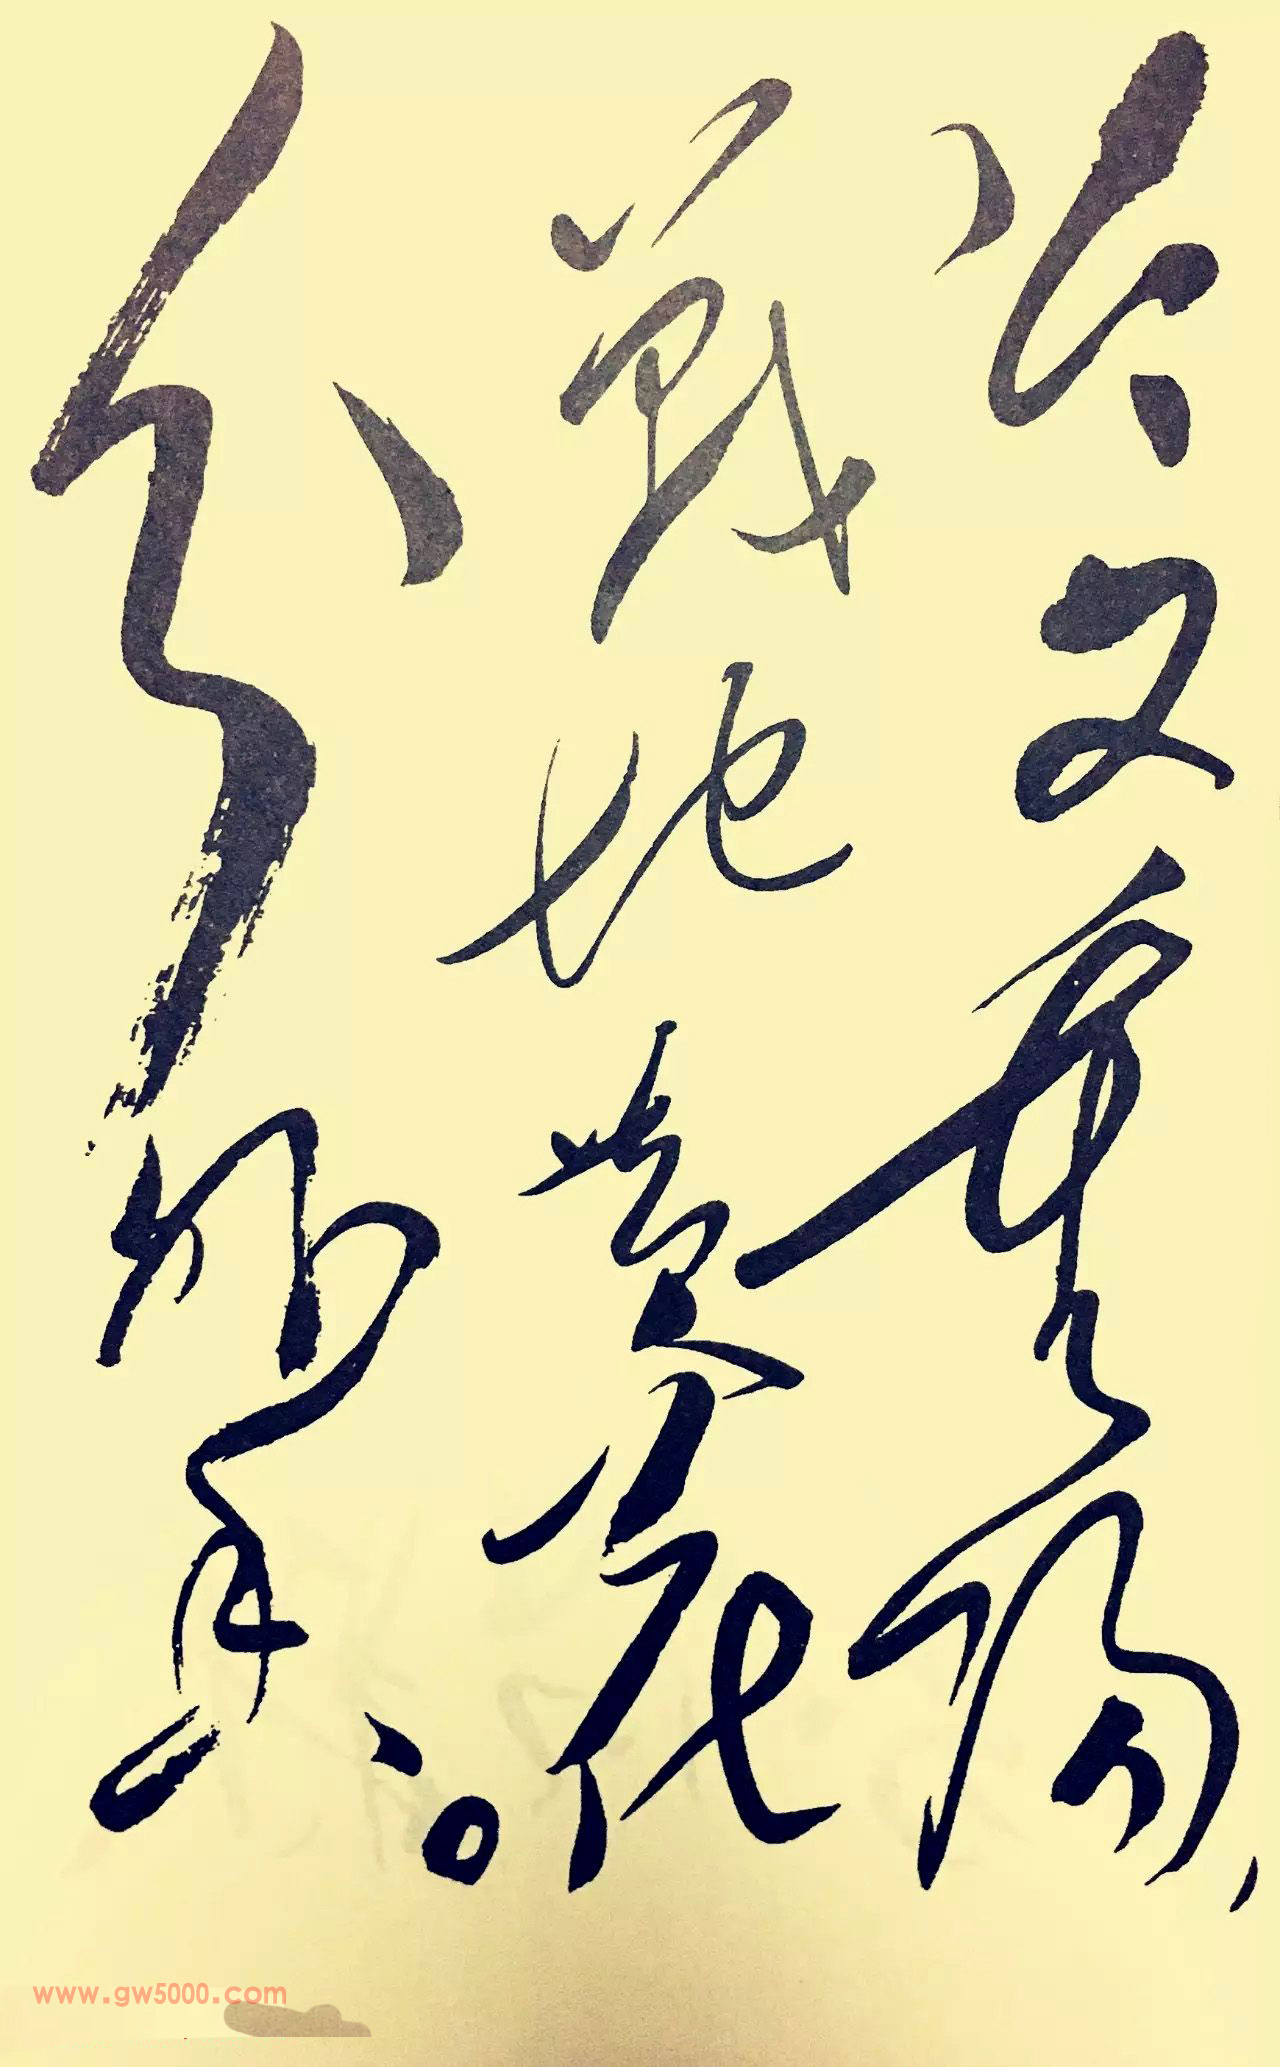 今又重陽，
戰地黄花
分外香。
www.gw5000.com